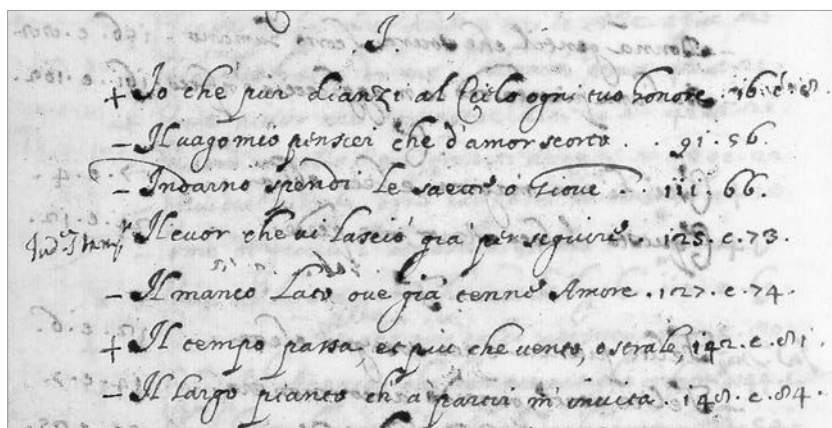 I.
+ Io che pur dianzi al Cielo ogni tuo honore. 16. e. 8.
- Il vago mio pensier che d'amor scorto . . 91. 56.
- Indarno spendi le saette ò Giove . . 111. 66.
Il cuor che vi lasciò già per seguire. 125. e. 73.
- Il manco lato ove già tenne Amore. 127. e. 74.
+ Il tempo passa, et più che vento, o strale, 142. e. 81.
- Il largo pianto ch'a partir m'invita. 148. e. 84.